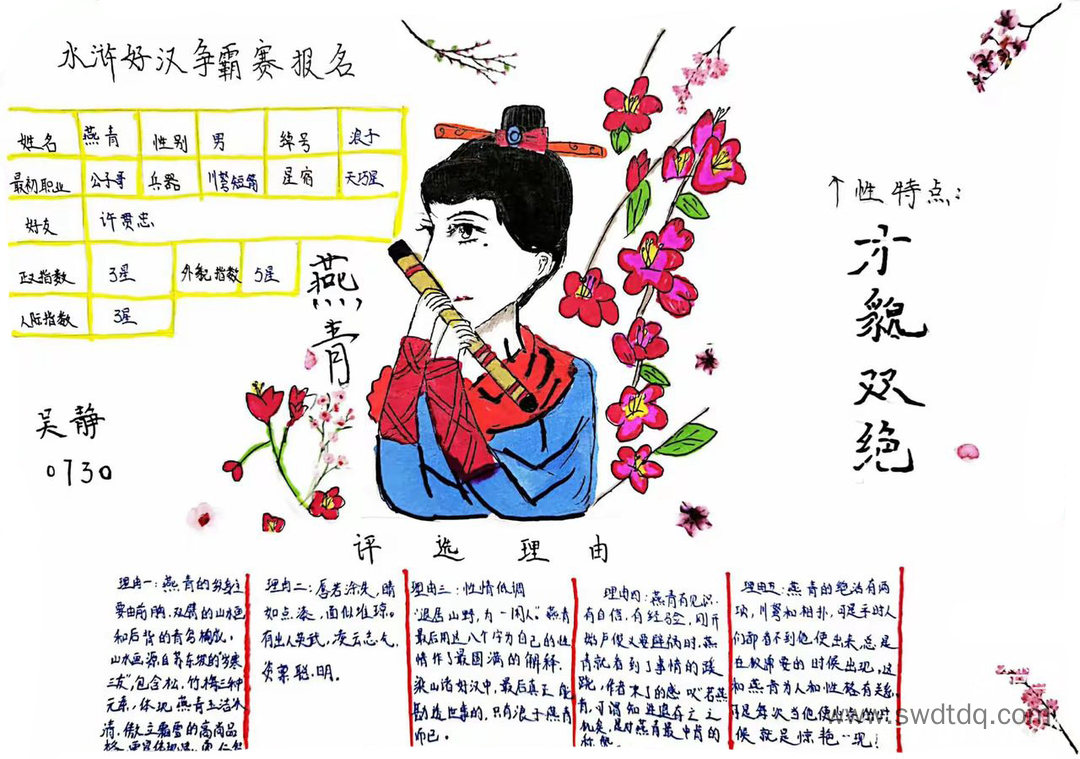 水浒好汉争霸赛报名
姓名 燕青 性别 男 绰号 浪子
最初职业 公子哥 兵器 川弩短箭 星宿 天巧星
好友 许贯忠
正义指数 3星 外貌指数 5星
人际指数 3星
燕青
吴静
0730
个性特点:
才貌双绝
评选理由
理由一:燕青的纹身主
要由前胸,双臂的山水画
和后背的青色
山水画源自苏东坡的"岁寒
三友",包含松,竹梅三种
元素,体现燕青玉洁冰
清,傲立霜雪的高尚品
格
理由二:唇若涂朱,睛
如点漆,面似堆琼。
有出人英武,凌云志气,
资禀聪明。
理由三:性情低调
"退居山野,为一闲人"。燕青
最后用这八个字为自己的性
情作了最圆满的解释,
梁山诸好汉中,最后真正能
勘透世事的,只有浪子燕青
而已。
理由四:燕青有见识
有自信,有经验,刚开
始卢俊义要避祸时,燕
青就看到了事情的蹊
跷,作者末了的感叹"若燕
青,可谓知进退存亡之
机矣,是对燕青最中肯的
理由五:燕青的绝活有两
项,川弩和相扑,可是平时人
们都看不到他使出来,总是
在最需要的时候出现,这
和燕青为人和性格有关系,
可是每次当他使出绝活时
候就是惊艳一现!
www.swdtdq.com